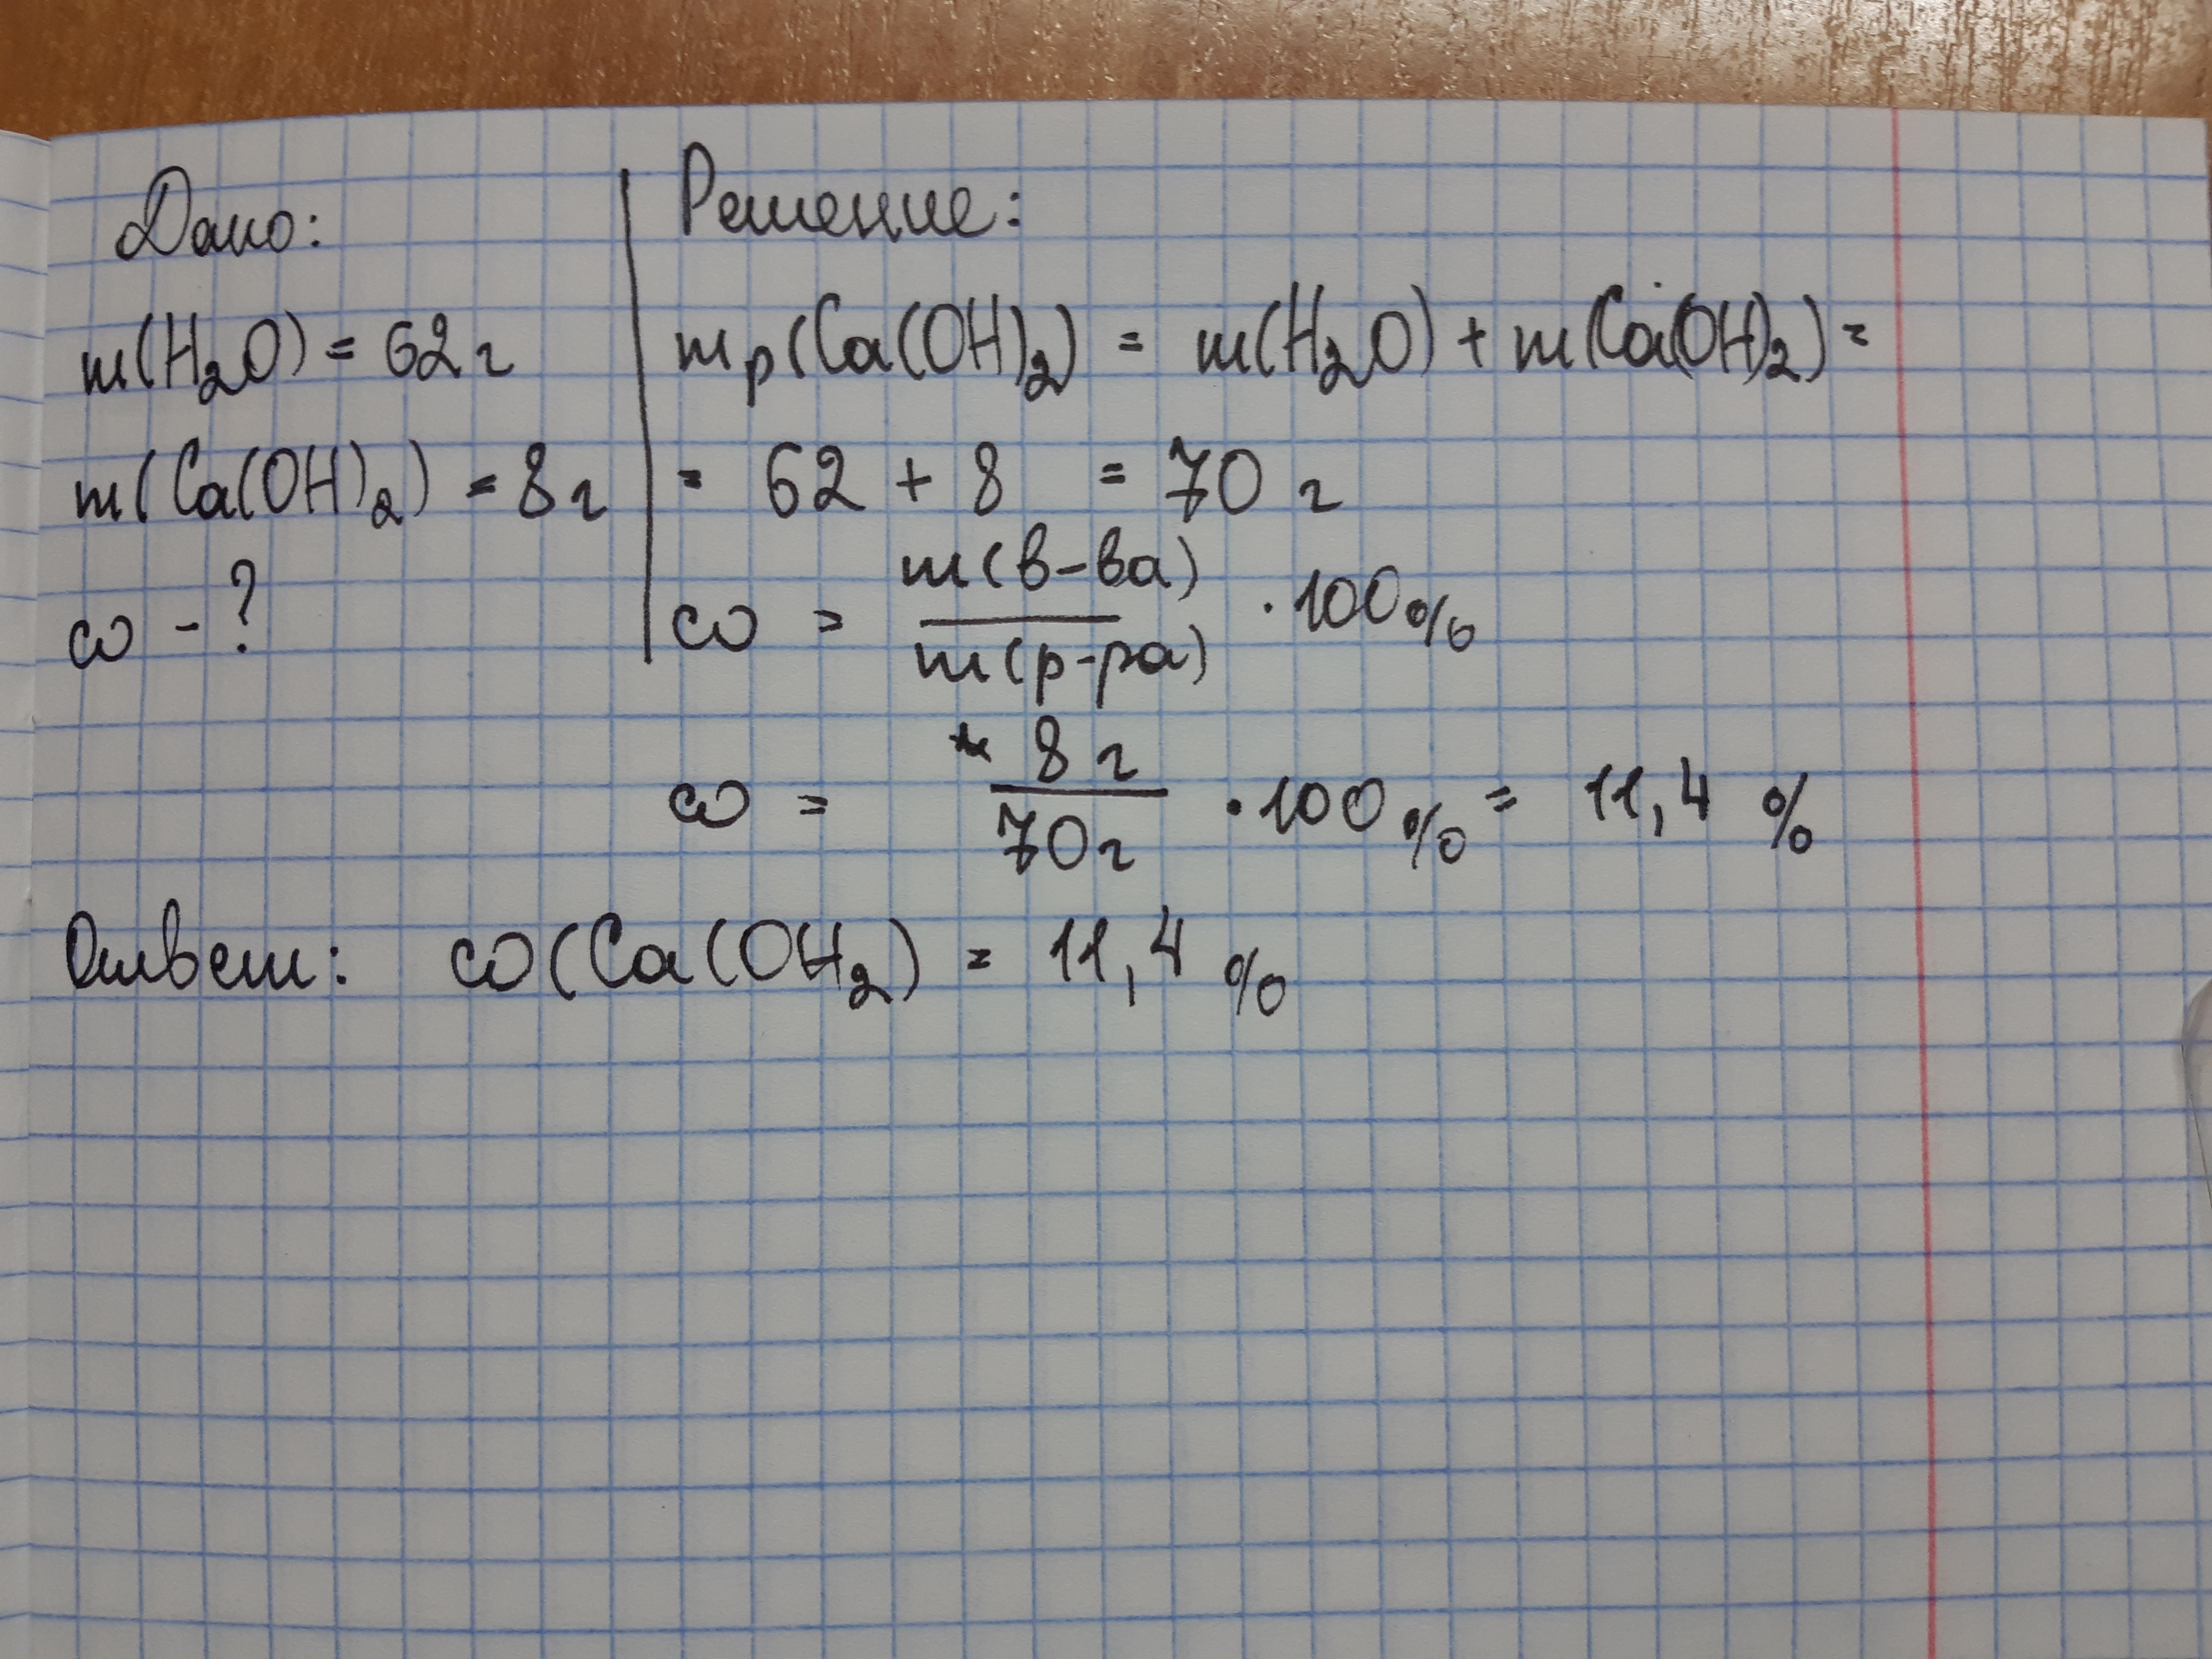 Дано:
m(H₂O) = 62 г
m(Ca(OH)₂) = 8 г
ω - ?
Решение:
mр(Ca(OH)₂) = m(H₂O) + m(Ca(OH)₂) =
= 62 + 8 = 70 г
ω = m(в-ва) / m(р-ра) · 100%
ω = 8 г / 70 г · 100% = 11,4 %
Ответ: ω(Ca(OH₂) = 11,4 %